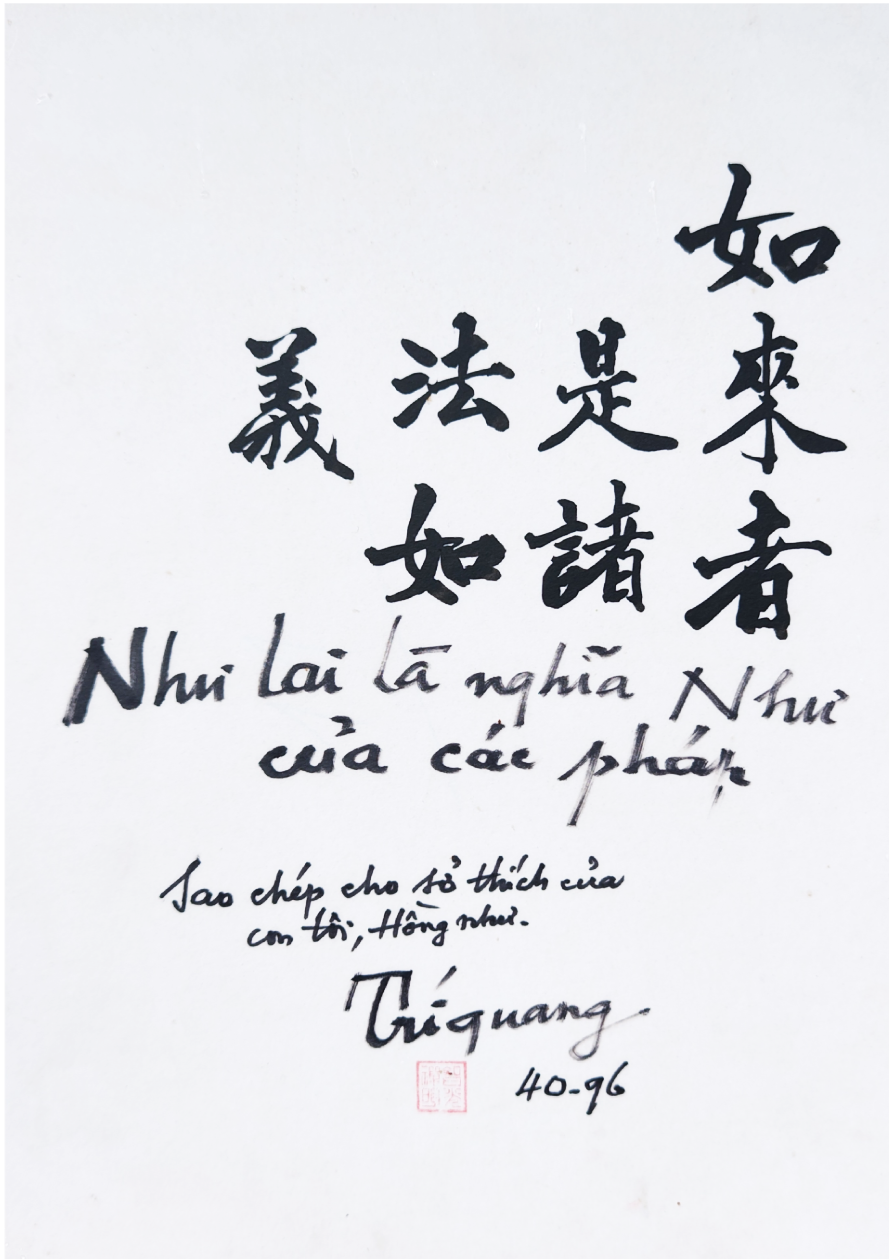 如來者
是諸
法如
義
Như lai là nghĩa Như
của các pháp
Sao chép cho sở thích của
con tôi, Hồng như.
Trí quang
40-96